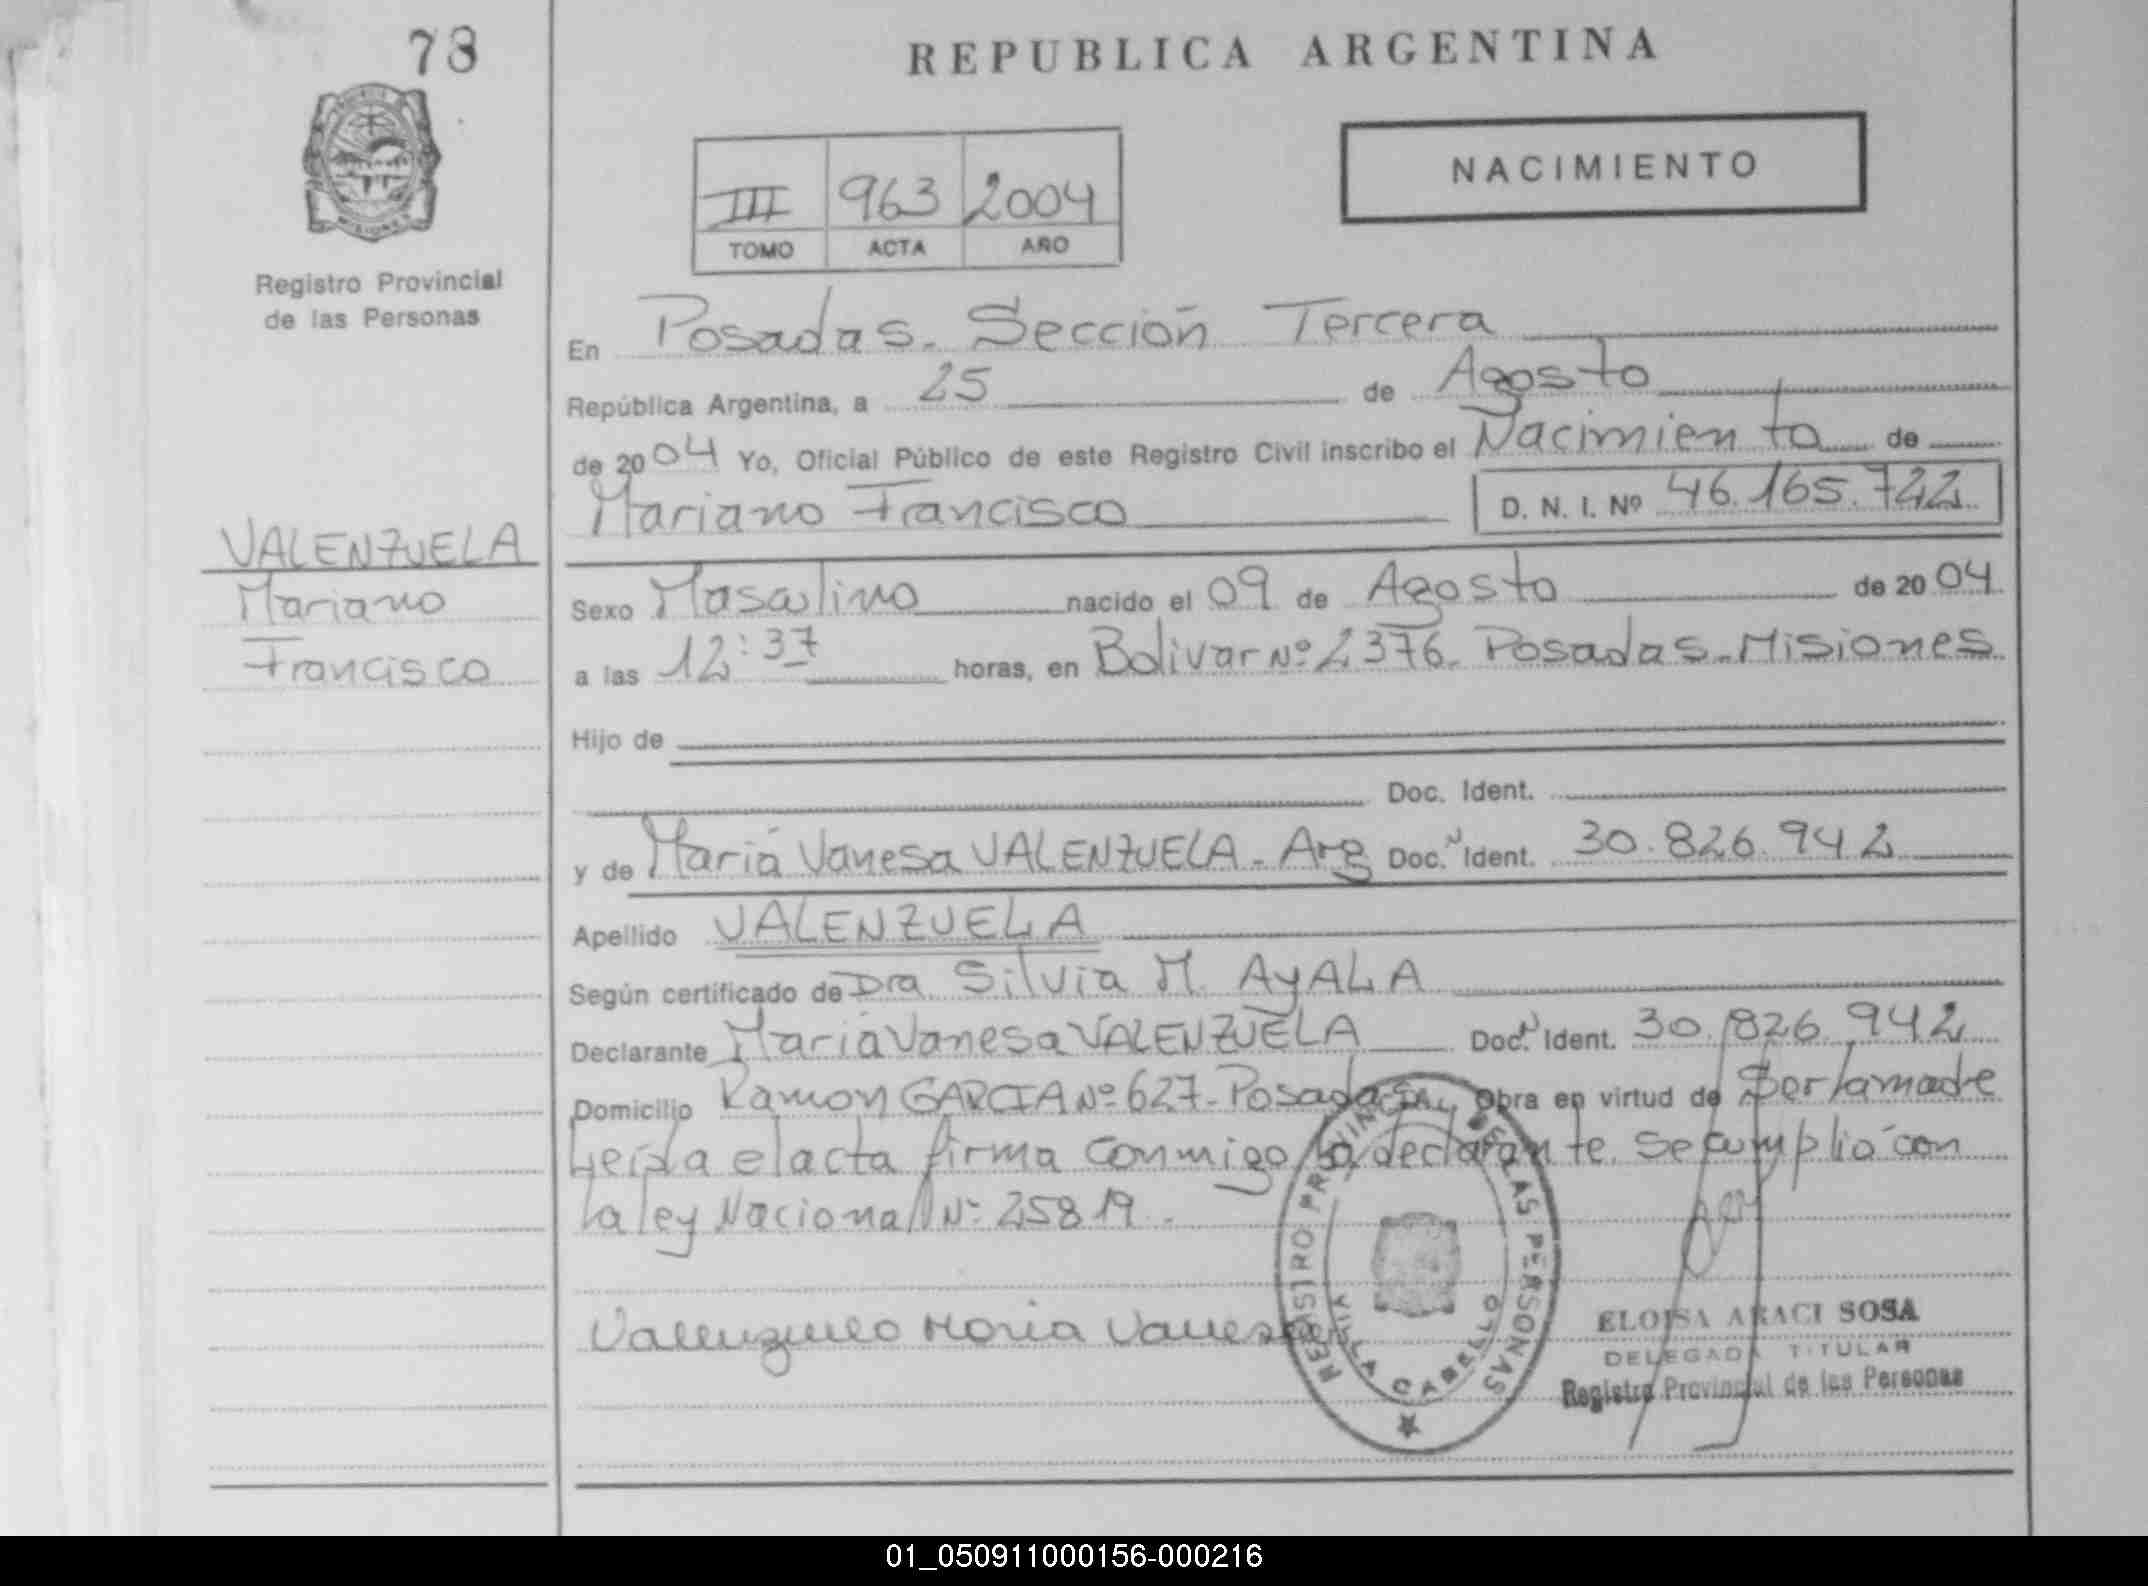 78
REPUBLICA ARGENTINA
NACIMIENTO
III 963 2004
TOMO ACTA AÑO
Registro Provincial
de las Personas
En Posadas. Sección Tercera
República Argentina, a 25 de Agosto
de 2004 Yo, Oficial Público de este Registro Civil inscribo el Nacimiento de
Mariano Francisco D. N. I. Nº 46.165.722
VALENZUELA
Mariano
Francisco
Sexo Masculino nacido el 09 de Agosto de 2004.
a las 12:37 horas, en Bolivar Nº 2376. Posadas-Misiones
Hijo de
Doc. Ident.
y de María Vanesa VALENZUELA - Arg Doc. N Ident. 30.826.942
Apellido VALENZUELA
Según certificado de Dra Silvia M. AYALA
Declarante María Vanesa VALENZUELA Doc. N Ident. 30.826.942
Domicilio Ramon GARCIA Nº 627-Posadas Obra en virtud de Ser la madre
Leída el acta firma conmigo la declarante. Se cumplió con
la ley Nacional Nº 25819.
Valenzuela Maria Vanesa
REGISTRO PROVINCIAL DE LAS PERSONAS
VILLA CABELLO
ELOISA ARACI SOSA
DELEGADA TITULAR
Registro Provincial de las Personas
01_050911000156-000216